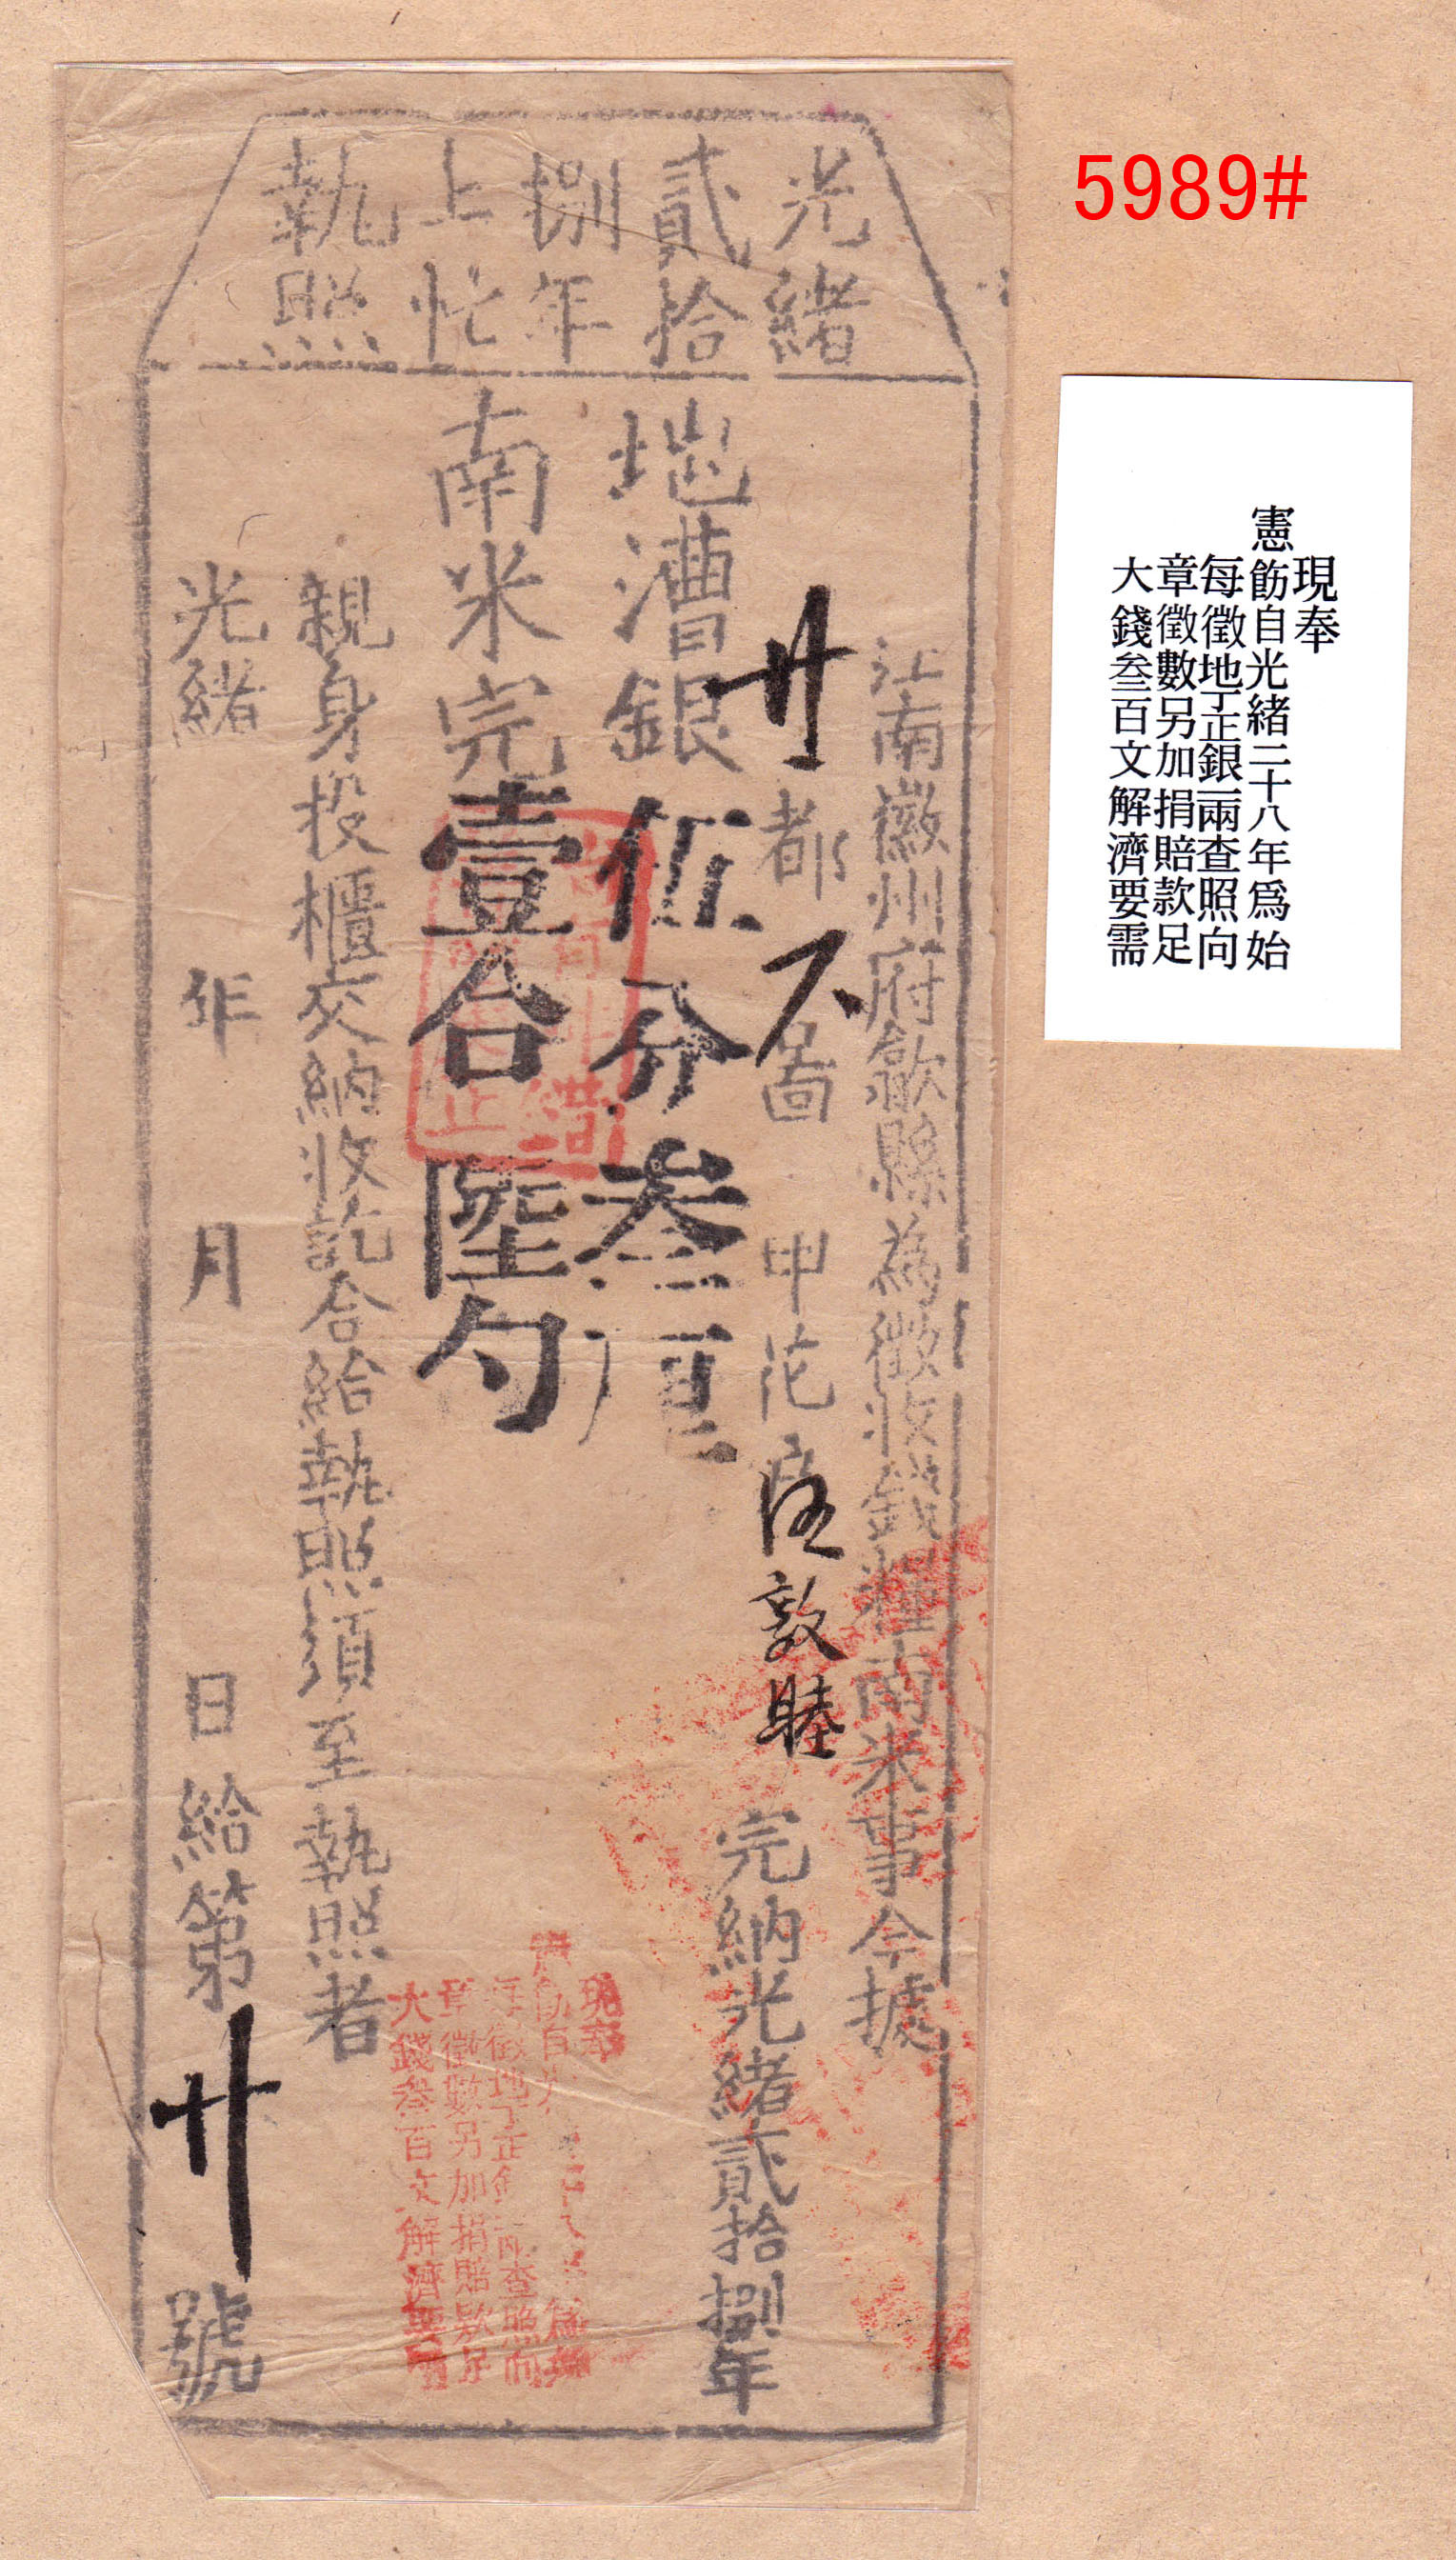 5989#
現奉
憲飭自光緒二十八年爲始
每徵地丁正銀一兩查照向
章徵數另加捐賠款足
大錢叁百文解濟要需
光緒
貳拾
捌年
上忙
執照
江南徽州府歙縣為徵收錢糧南米事今據
廿都 圖 甲花户 敦睦 完納光緒貳拾捌年
地漕銀伍分叁厘
南米完壹合陸勺
親身投櫃交納收訖合給執照須至執照者
光緒 年 月 日給第廿號
現奉
大錢叁百文解濟要需
章徵數另加捐賠款足